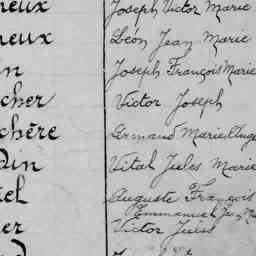 neux Joseph Victor Marie
neux Léon Jean Marie
in Joseph François Marie
cher Victor Joseph
chère Armand Marie Ange
din Vital Jules Marie
el Auguste François
Emmanuel Jean M
er Victor Jules